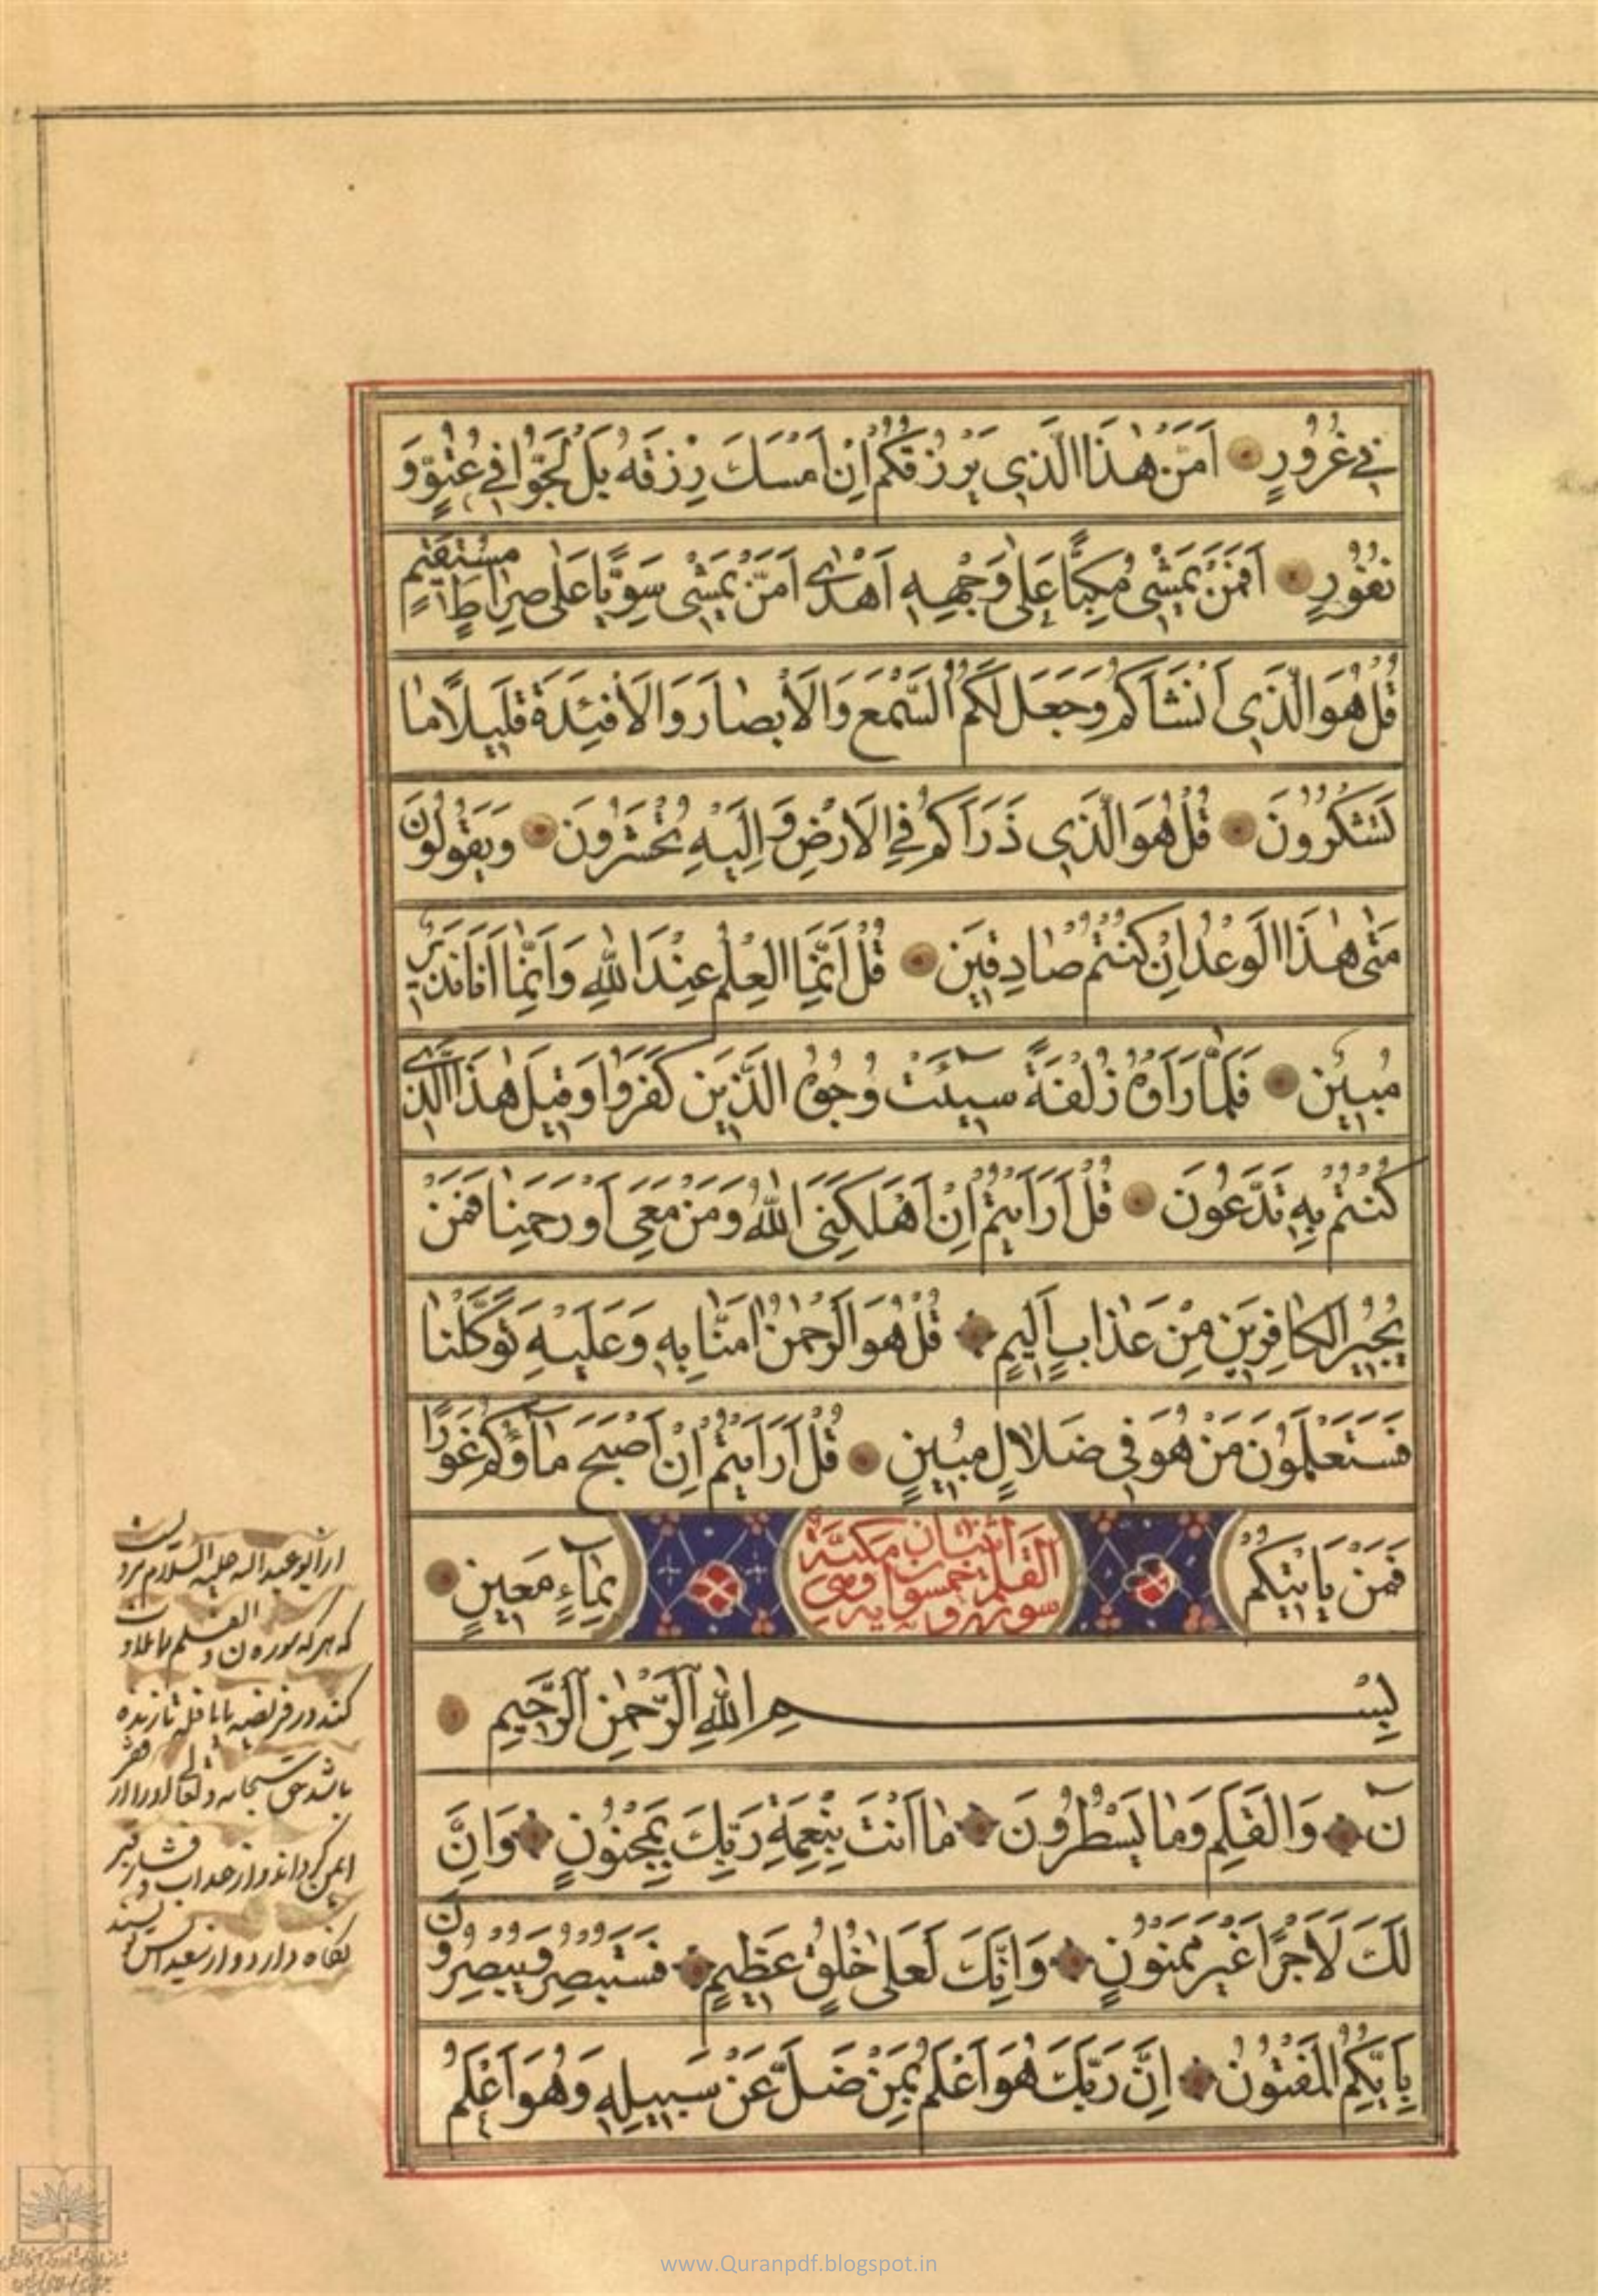 فِي غُرُورٍ اَمَّنْ هٰذَا الَّذِي يَرْزُقُكُمْ اِنْ اَمْسَكَ رِزْقَهُ بَلْ لَجُّوا فِي عُتُوٍّ وَ
نُفُورٍ اَفَمَنْ يَمْشِي مُكِبًّا عَلٰى وَجْهِهِ اَهْدٰى اَمَّنْ يَمْشِي سَوِيًّا عَلٰى صِرَاطٍ مُسْتَقِيمٍ
قُلْ هُوَ الَّذِي اَنْشَاَكُمْ وَجَعَلَ لَكُمُ السَّمْعَ وَالْاَبْصَارَ وَالْاَفْئِدَةَ قَلِيلًا مَا
تَشْكُرُونَ قُلْ هُوَ الَّذِي ذَرَاَكُمْ فِي الْاَرْضِ وَاِلَيْهِ تُحْشَرُونَ وَيَقُولُونَ
مَتٰى هٰذَا الْوَعْدُ اِنْ كُنْتُمْ صَادِقِينَ قُلْ اِنَّمَا الْعِلْمُ عِنْدَ اللهِ وَاِنَّمَا اَنَا نَذِيرٌ
مُبِينٌ فَلَمَّا رَاَوْهُ زُلْفَةً سِيۤئَتْ وُجُوهُ الَّذِينَ كَفَرُوا وَقِيلَ هٰذَا الَّذِي
كُنْتُمْ بِهِ تَدَّعُونَ قُلْ اَرَاَيْتُمْ اِنْ اَهْلَكَنِيَ اللهُ وَمَنْ مَعِيَ اَوْ رَحِمَنَا فَمَنْ
يُجِيرُ الْكَافِرِينَ مِنْ عَذَابٍ اَلِيمٍ قُلْ هُوَ الرَّحْمٰنُ اٰمَنَّا بِهِ وَعَلَيْهِ تَوَكَّلْنَا
فَسَتَعْلَمُونَ مَنْ هُوَ فِي ضَلَالٍ مُبِينٍ قُلْ اَرَاَيْتُمْ اِنْ اَصْبَحَ مَاۤؤُكُمْ غَوْرًا
فَمَنْ يَاْتِيكُمْ بِمَاۤءٍ مَعِينٍ
سورة القلم خمسون آيه وهي اثنتان مكية
بِسْمِ اللهِ الرَّحْمٰنِ الرَّحِيمِ
نۤ وَالْقَلَمِ وَمَا يَسْطُرُونَ مَا اَنْتَ بِنِعْمَةِ رَبِّكَ بِمَجْنُونٍ وَاِنَّ
لَكَ لَاَجْرًا غَيْرَ مَمْنُونٍ وَاِنَّكَ لَعَلٰى خُلُقٍ عَظِيمٍ فَسَتُبْصِرُ وَيُبْصِرُونَ
بِاَيِّكُمُ الْمَفْتُونُ اِنَّ رَبَّكَ هُوَ اَعْلَمُ بِمَنْ ضَلَّ عَنْ سَبِيلِهِ وَهُوَ اَعْلَمُ
از ابو عبد الله عليه السلام مرويست
كه هر كه سوره ن والقلم را تلاوت
كند در فريضه يا نافله تا زنده
باشد حق سبحانه وتعالى او را از فقر
ايمن گرداند و از عذاب و فشار قبر
نگاه دارد و از
www.Quranpdf.blogspot.in